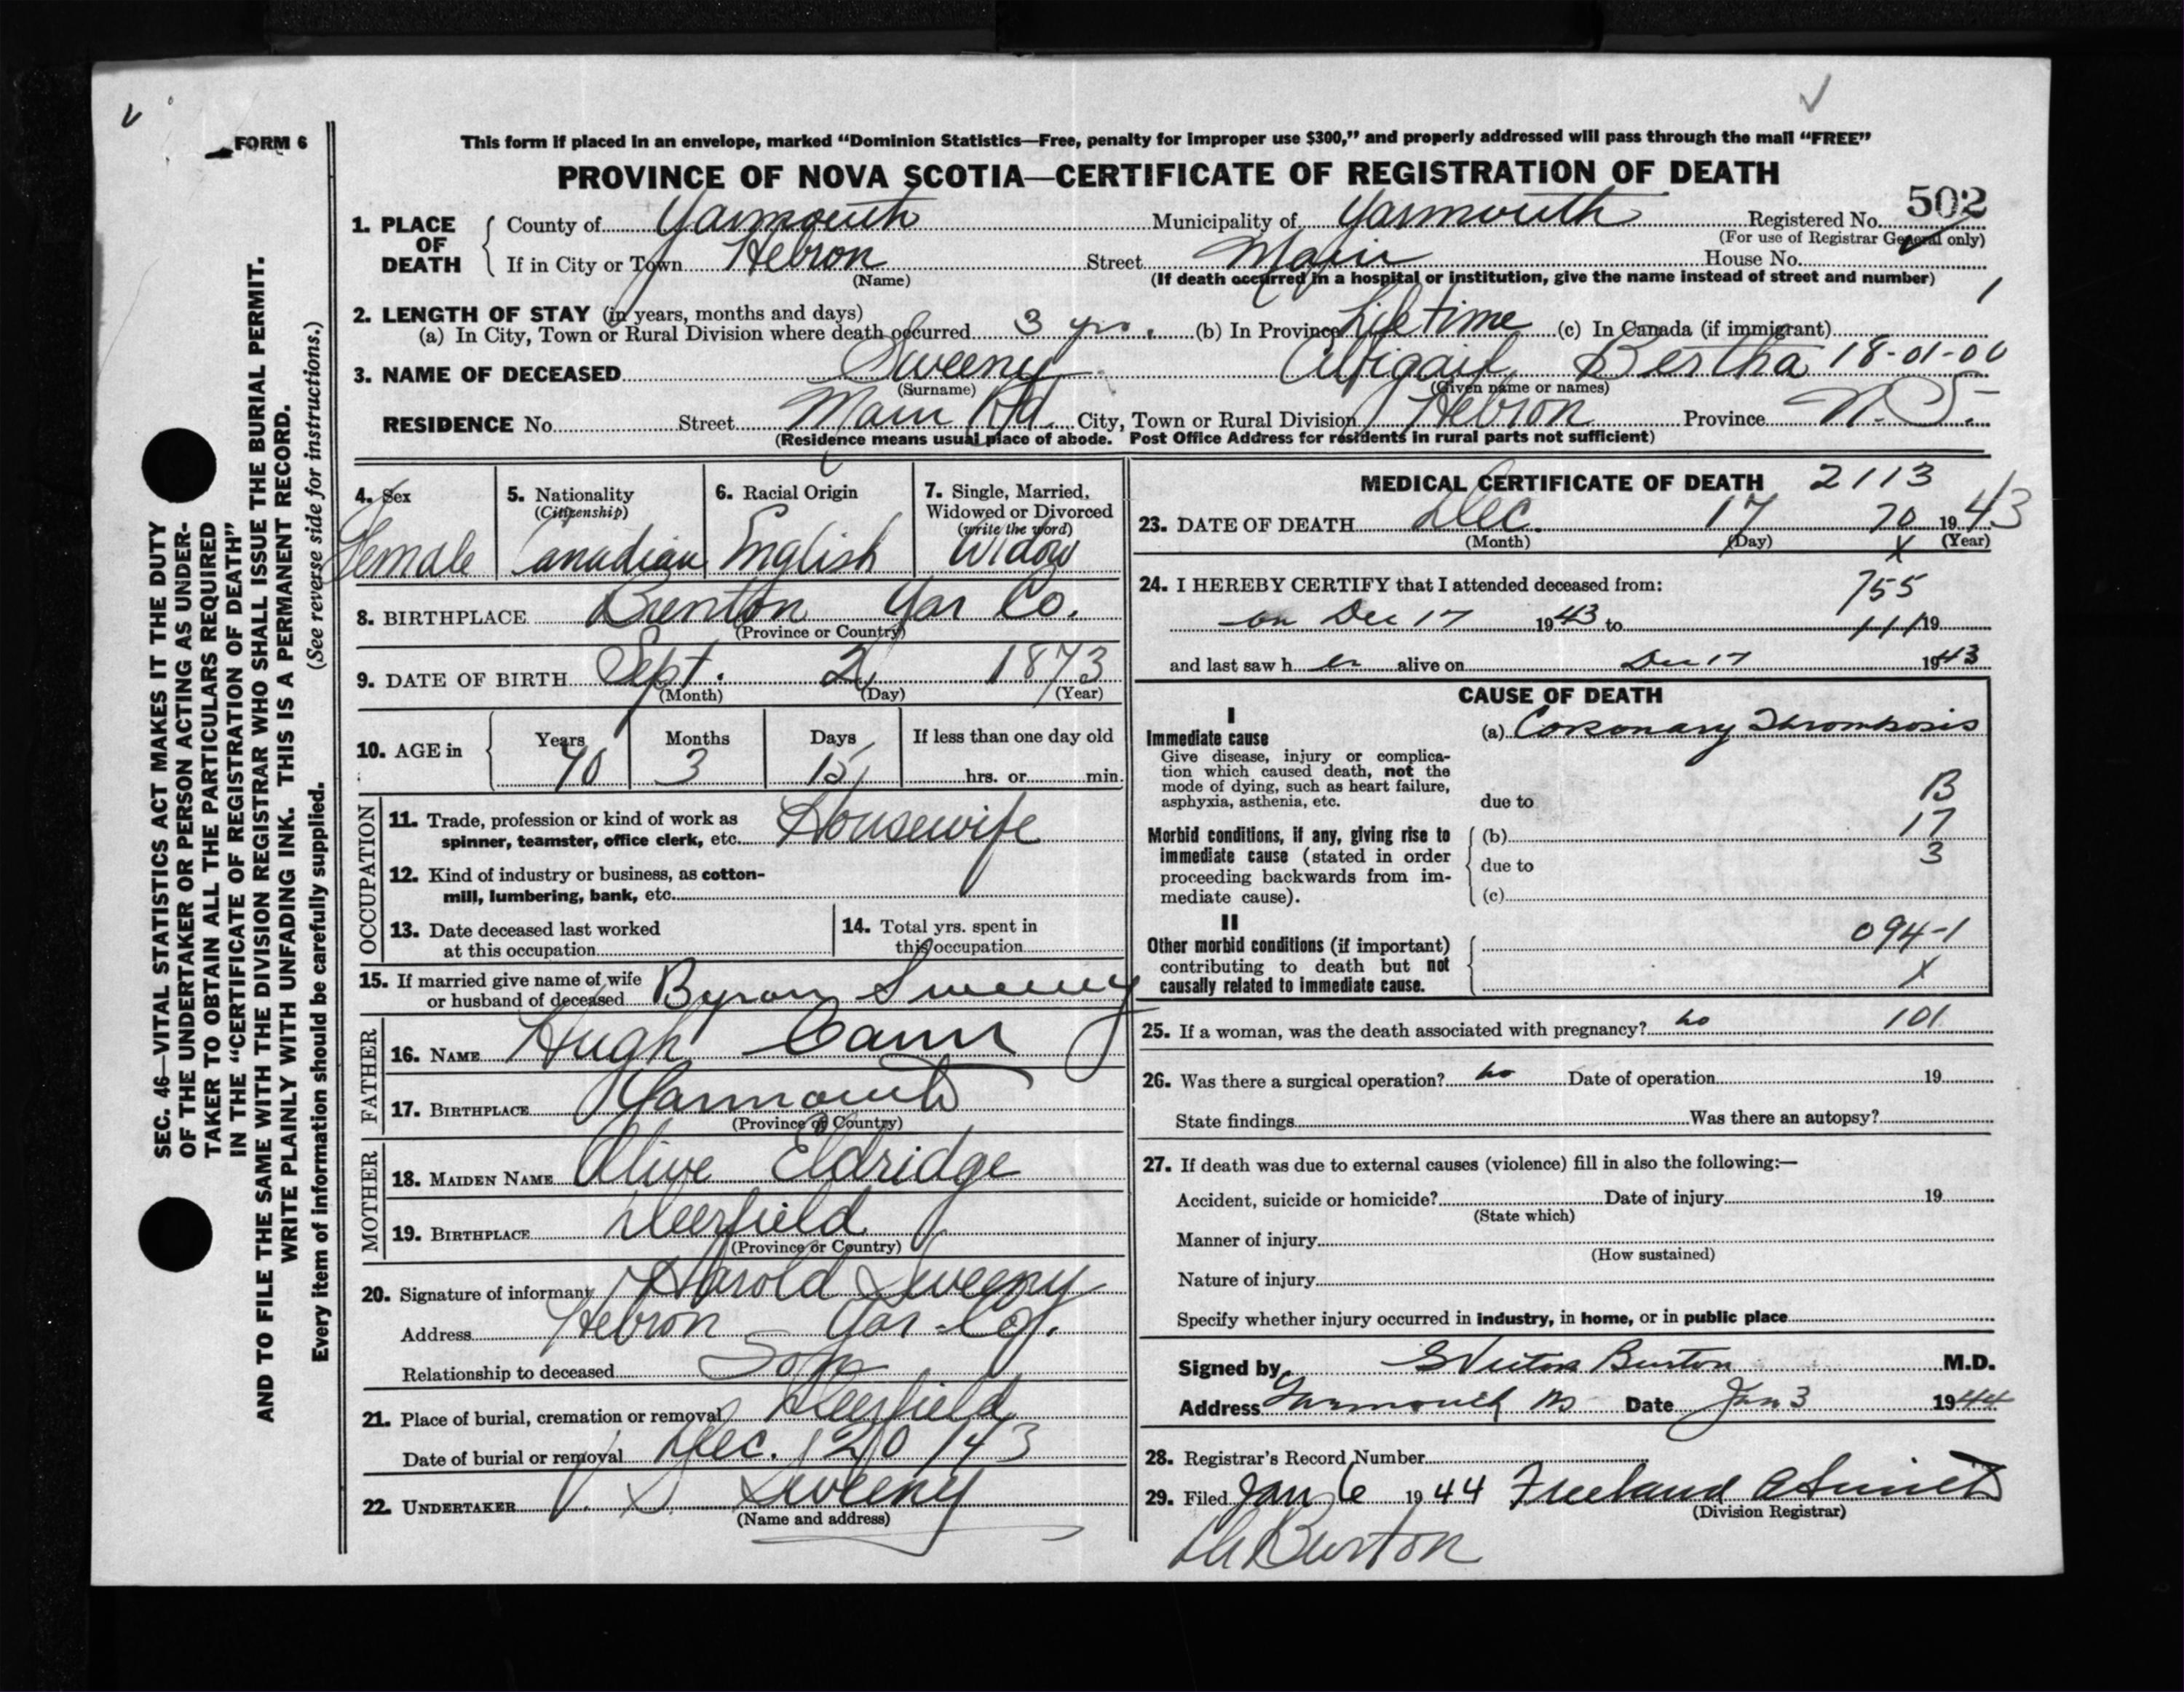 FORM 6
This form if placed in an envelope, marked “Dominion Statistics—Free, penalty for improper use $300,” and properly addressed will pass through the mail “FREE”
PROVINCE OF NOVA SCOTIA—CERTIFICATE OF REGISTRATION OF DEATH
502
1. PLACE OF DEATH
County of Yarmouth Municipality of Yarmouth Registered No.
(For use of Registrar General only)
If in City or Town Hebron Street Main House No.
(Name) (If death occurred in a hospital or institution, give the name instead of street and number)
2. LENGTH OF STAY (in years, months and days)
(a) In City, Town or Rural Division where death occurred 3 yrs. (b) In Province Lifetime (c) In Canada (if immigrant)
3. NAME OF DECEASED Sweeny Abigail Bertha 18-01-00
(Surname) (Given name or names)
RESIDENCE No. Street Main Rd. City, Town or Rural Division Hebron Province N.S.
(Residence means usual place of abode. Post Office Address for residents in rural parts not sufficient)
4. Sex
Female
5. Nationality
(Citizenship)
Canadian
6. Racial Origin
English
7. Single, Married, Widowed or Divorced
(write the word)
Widow
8. BIRTHPLACE Brenton Yar Co.
(Province or Country)
9. DATE OF BIRTH Sept. 2 1873
(Month) (Day) (Year)
10. AGE in
Years Months Days If less than one day old
70 3 15 hrs. or min.
OCCUPATION
11. Trade, profession or kind of work as
spinner, teamster, office clerk, etc. Housewife
12. Kind of industry or business, as cotton-
mill, lumbering, bank, etc.
13. Date deceased last worked
at this occupation
14. Total yrs. spent in
this occupation
15. If married give name of wife
or husband of deceased Byron Sweeny
FATHER
16. NAME Hugh Cann
17. BIRTHPLACE Yarmouth
(Province or Country)
MOTHER
18. MAIDEN NAME Olive Eldridge
19. BIRTHPLACE Deerfield
(Province or Country)
20. Signature of informant Harold Sweeny
Address Hebron Yar. Co.
Relationship to deceased Son
21. Place of burial, cremation or removal Deerfield
Date of burial or removal Dec. 20 / 43
22. UNDERTAKER V. S. Sweeny
(Name and address)
MEDICAL CERTIFICATE OF DEATH 2113
23. DATE OF DEATH Dec. 17 70 1943
(Month) (Day) X (Year)
24. I HEREBY CERTIFY that I attended deceased from: 755
on Dec 17 1943 to 111 19
and last saw her alive on Dec 17 1943
CAUSE OF DEATH
I
Immediate cause (a) Coronary Thrombosis
Give disease, injury or complica-
tion which caused death, not the
mode of dying, such as heart failure,
asphyxia, asthenia, etc. due to B
Morbid conditions, if any, giving rise to (b) 17
immediate cause (stated in order due to 3
proceeding backwards from im-
mediate cause). (c)
II
Other morbid conditions (if important) 094-1
contributing to death but not X
causally related to immediate cause.
25. If a woman, was the death associated with pregnancy? no 101
26. Was there a surgical operation? no Date of operation 19
State findings Was there an autopsy?
27. If death was due to external causes (violence) fill in also the following:—
Accident, suicide or homicide? Date of injury 19
(State which)
Manner of injury
(How sustained)
Nature of injury
Specify whether injury occurred in industry, in home, or in public place
Signed by Victor Burton M.D.
Address Yarmouth NS Date Jan 3 1944
28. Registrar's Record Number
29. Filed Jan 6 1944 Freeland
(Division Registrar)
Dr Burton
SEC. 46—VITAL STATISTICS ACT MAKES IT THE DUTY
OF THE UNDERTAKER OR PERSON ACTING AS UNDER-
TAKER TO OBTAIN ALL THE PARTICULARS REQUIRED
IN THE “CERTIFICATE OF REGISTRATION OF DEATH”
AND TO FILE THE SAME WITH THE DIVISION REGISTRAR WHO SHALL ISSUE THE BURIAL PERMIT.
WRITE PLAINLY WITH UNFADING INK. THIS IS A PERMANENT RECORD.
Every item of information should be carefully supplied. (See reverse side for instructions.)